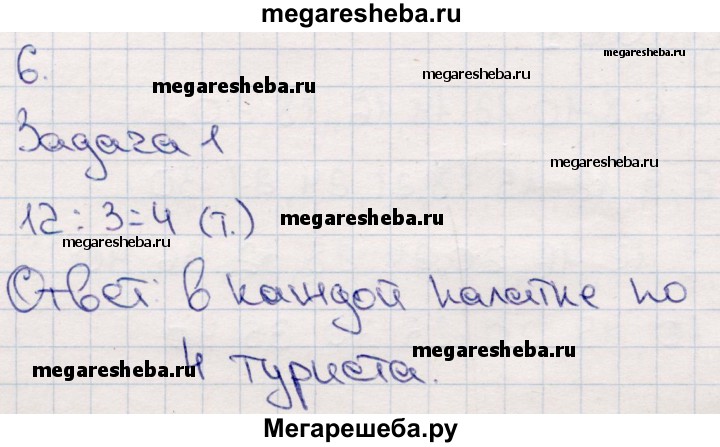 megaresheba.ru
6.
megaresheba.ru
megaresheba.ru
megaresheba.ru
Задача 1
megaresheba.ru
12 : 3 = 4 (т.)
megaresheba.ru
megaresheba.ru
Ответ: в каждой палатке по
4 туриста.
megaresheba.ru
megaresheba.ru
Мегарешеба.ру